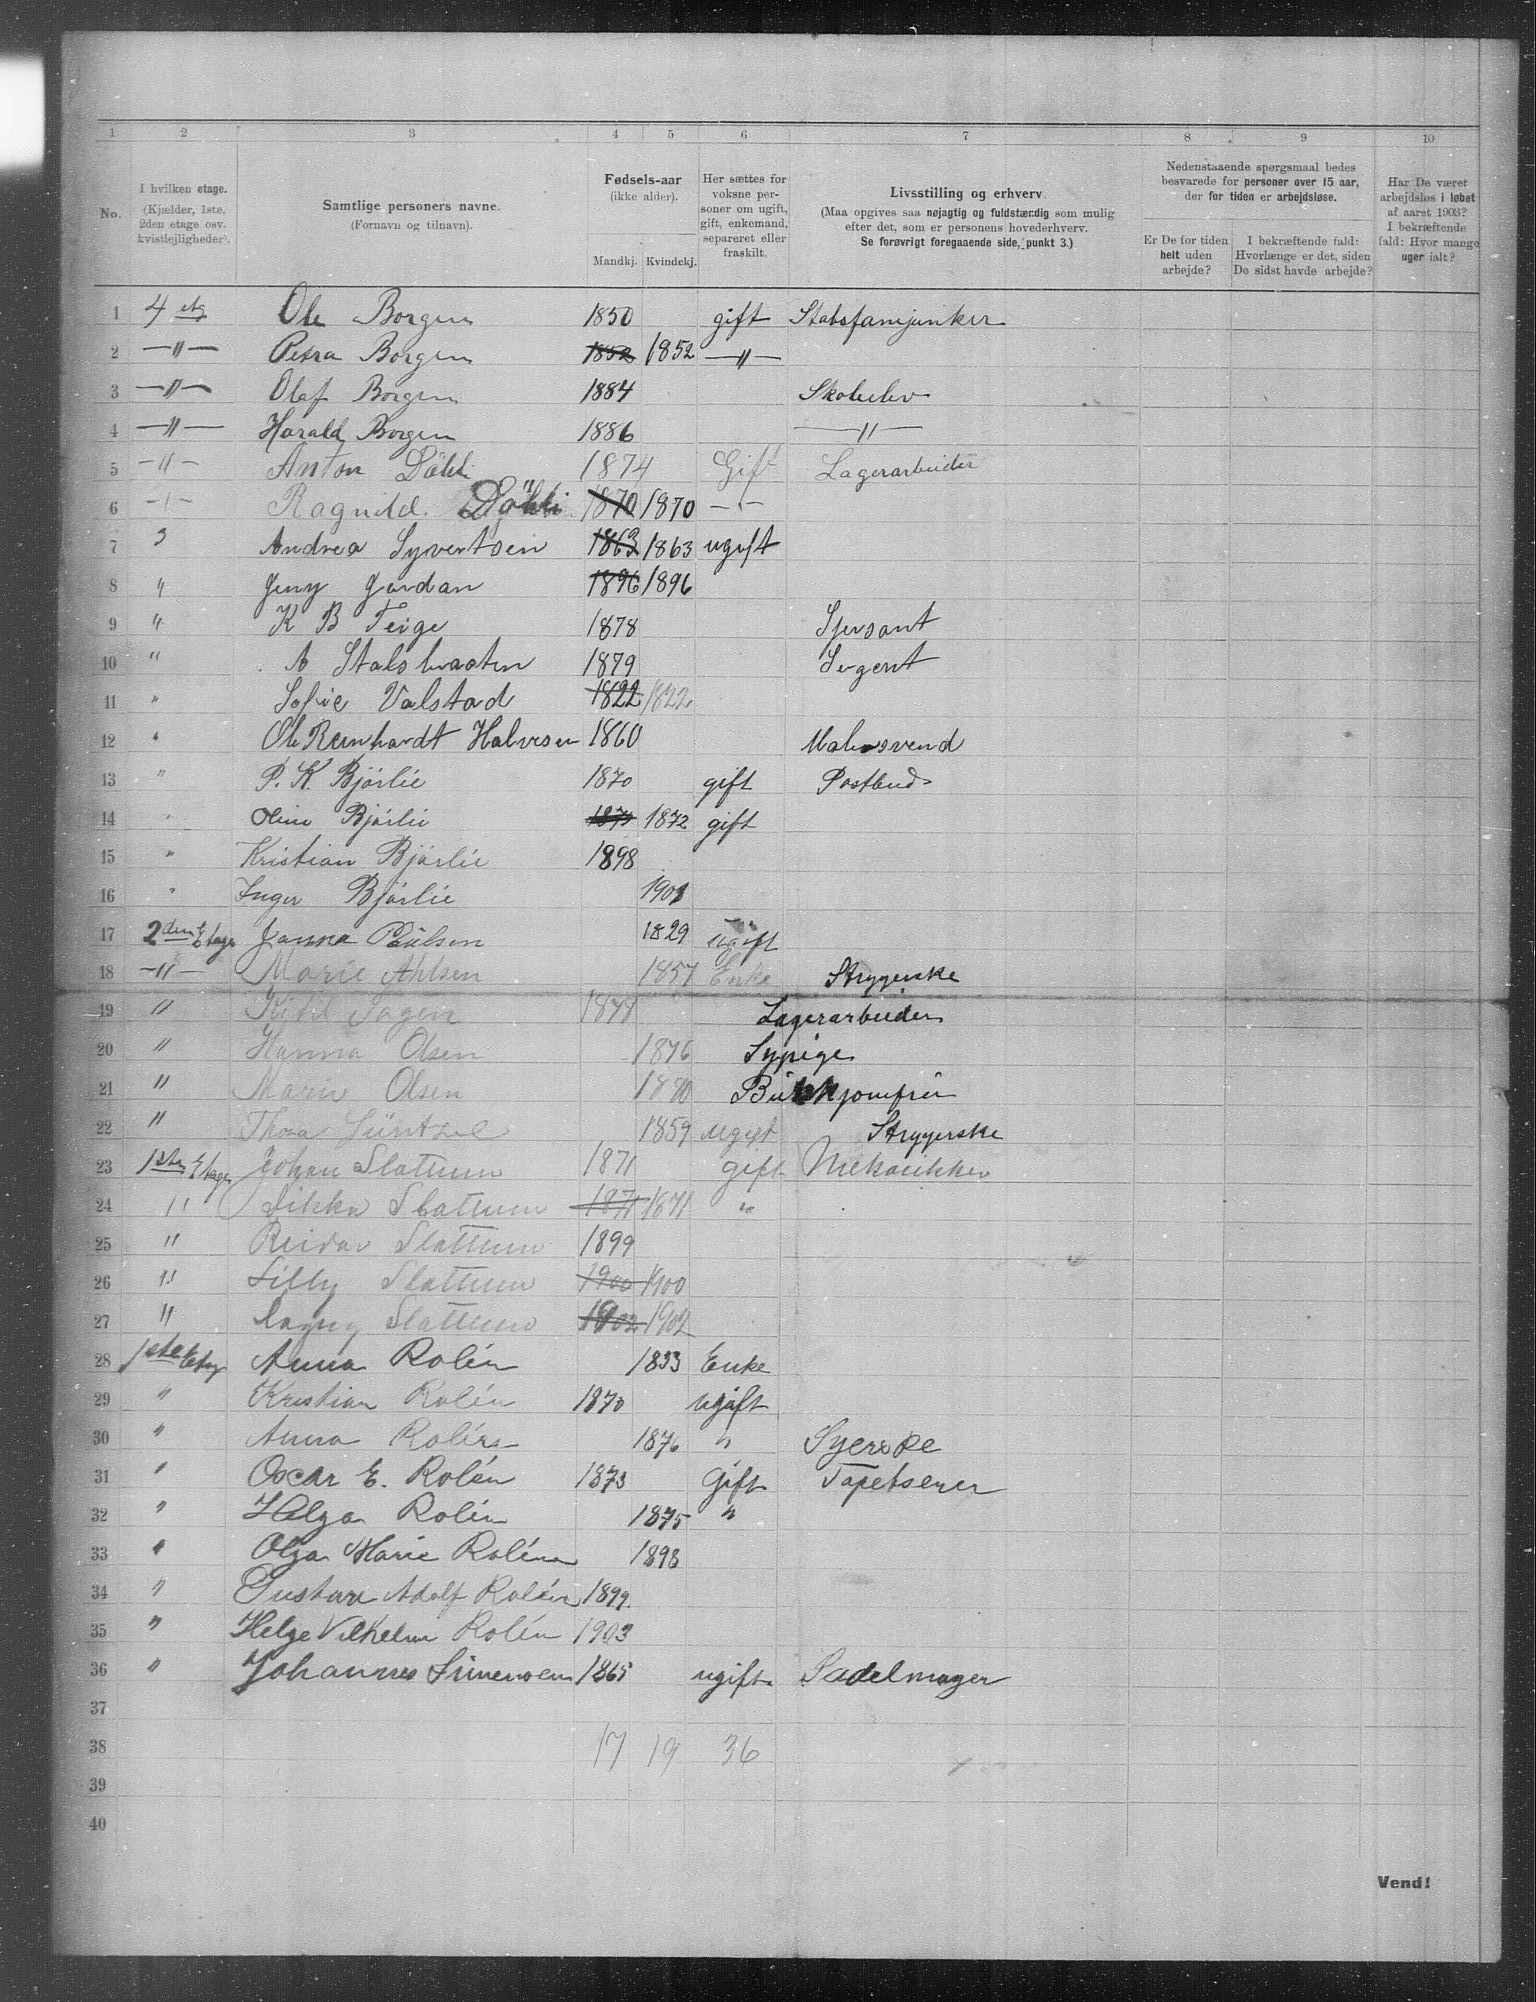 1 2 3 4 5 6 7 8 9 10
No.
I hvilken etage.
(Kjælder, 1ste,
2den etage osv.
kvistlejligheder).
Samtlige personers navne.
(Fornavn og tilnavn).
Fødsels-aar
(ikke alder).
Mandkj. Kvindekj.
Her sættes for
voksne per-
soner om ugift,
gift, enkemand,
separeret eller
fraskilt.
Livsstilling og erhverv.
(Maa opgives saa nøjagtig og fuldstærdig som mulig
efter det, som er personens hovederhverv.
Se forøvrigt foregaaende side, punkt 3.)
Nedenstaaende spørgsmaal bedes
besvarede for personer over 15 aar,
der for tiden er arbejdsløse.
Er De for tiden
helt uden
arbejde?
I bekræftende fald:
Hvorlænge er det, siden
De sidst havde arbejde?
Har De været
arbejdsløs i løbet
af aaret 1903?
I bekræftende
fald: Hvor mange
uger ialt?
1 4 etg Ole Borgen 1850 gift Stabsfanejunker
2 —"— Petra Borgen 1852 1852 —"—
3 —"— Olaf Borgen 1884 Skoleelev
4 —"— Harald Borgen 1886 —"—
5 —"— Anton Døhli 1874 Gift Lagerarbeider
6 —"— Ragnild Døhli 1870 1870 —"—
7 3 Andrea Syvertsen 1863 1863 ugift
8 " Jeny Jordan 1896 1896
9 " K B Teige 1878 Sjersant
10 " A 1879 Sergent
11 " Sofie Valstad 1822 1822
12 " Ole Reinhardt Halvesen 1860 Malersvend
13 " P. K. Bjørlie 1870 gift Postbud
14 " Oline Bjørlie 1872 gift
15 " Kristian Bjørlie 1898
16 " Inger Bjørlie 1901
17 2den Etage Janna Paulsen 1829 ugift
18 —"— Marie Ahlsen 1857 Enke Strygerske
19 " Kitil Sagen Lagerarbeider
20 " Hanna Olsen 1876 Sypige
21 " Marie Olsen 1880
22 " Thora Güntzel 1859 ugift Strygerske
23 1ste Etage Johan Slattum 1871 gift Mekanikker
24 " Dikka Slattum 1871 1871 "
25 " Reidar Slattum 1899
26 " Lilly Slattum 1900 1900
27 " Dagny Slattum 1902 1902
28 1ste Etag Anna Rolén 1833 Enke
29 " Kristian Rolén 1870 ugift
30 " Anna Rolén 1876 " Syerske
31 " Oscar E. Rolén 1873 Gift Tapetserer
32 " Helga Rolén 1875 "
33 " Olga Marie Rolén 1898
34 " Gustav Adolf Rolén 1899.
35 " Helge Vilhelm Rolén 1903
36 " Johannes Simensen 1865 ugift Sadelmager
37
38 17 19 36
39
40
Vend!